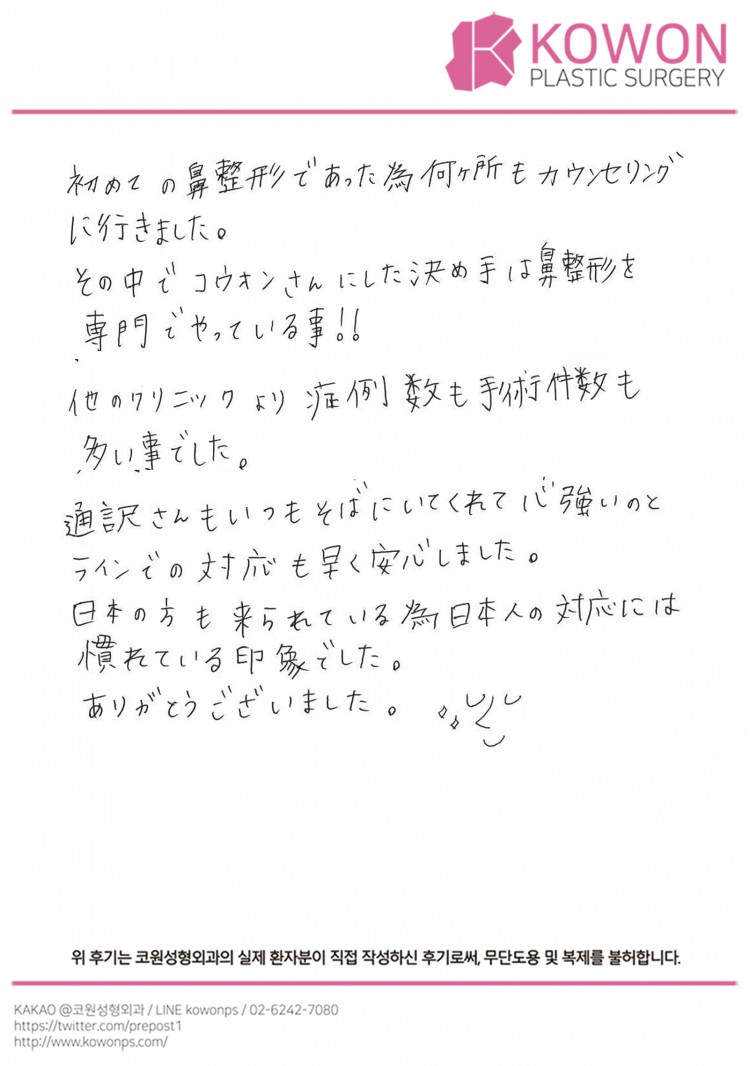 KOWON
PLASTIC SURGERY
初めての鼻整形であった為何ヶ所もカウンセリング
に行きました。
その中でコウオンさんにした決め手は鼻整形を
専門でやっている事!!
他のクリニックより症例数も手術件数も
多い事でした。
通訳さんもいつもそばにいてくれて心強いのと
ラインでの対応も早く安心しました。
日本の方も来られている為日本人の対応には
慣れている印象でした。
ありがとうございました。
위 후기는 코원성형외과의 실제 환자분이 직접 작성하신 후기로써, 무단도용 및 복제를 불허합니다.
KAKAO @코원성형외과 / LINE kowonps / 02-6242-7080
https://twitter.com/prepost1
http://www.kowonps.com/